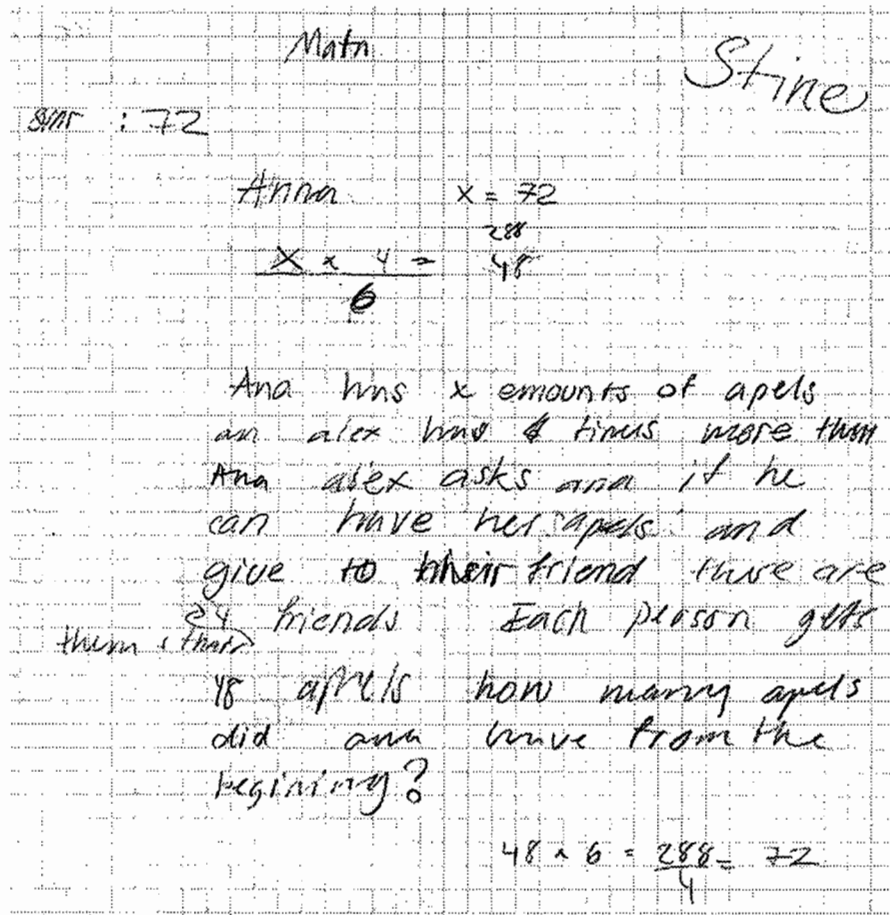 Math
Stine
: 72
Anna x = 72
288
X x 4 = 48
6
Ana has x emounts of apels
an alex has 4 timus more than
Ana alex asks ana if he
can have her apels and
give to their friend thure are
24 friends Each person gets
them
48 apels how many apels
did ana have from the
begining?
48 x 6 = 288 = 72
4